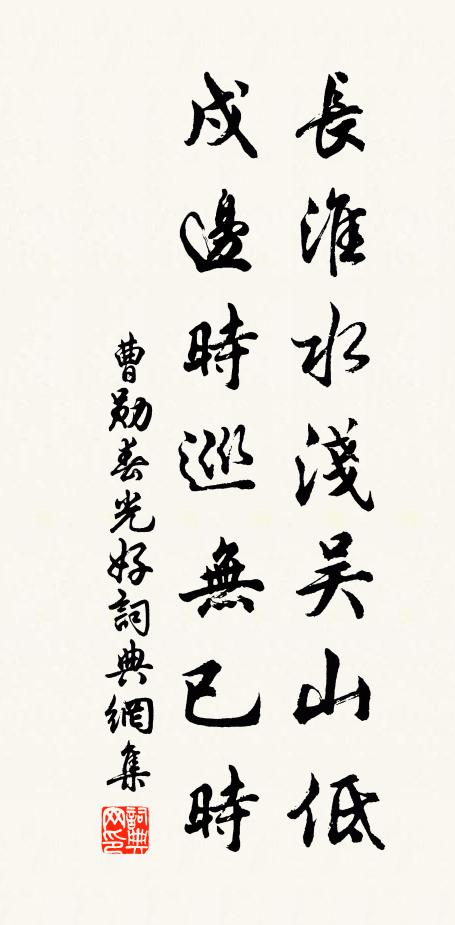 長淮水淺吴山低
戍邊時巡無已時
曹勛春光好詞典網集
詞典网印